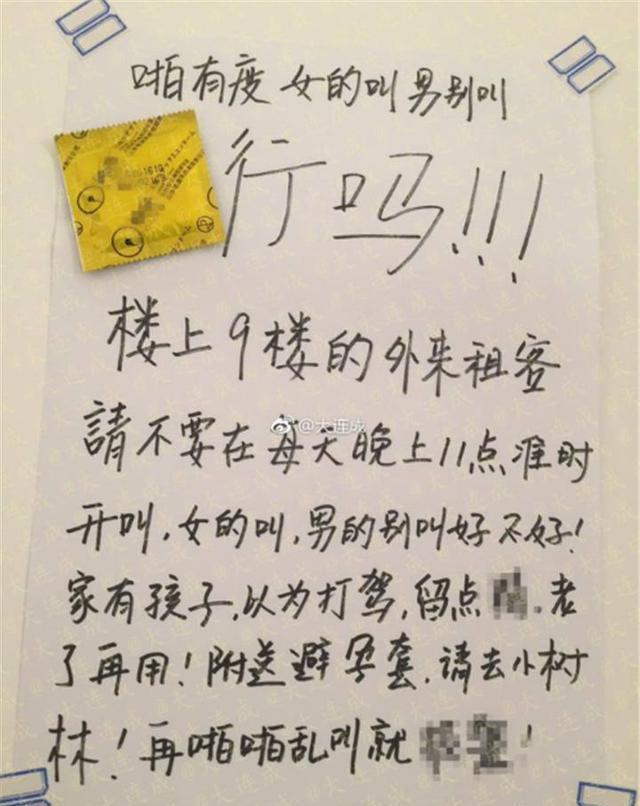 啪有度 女的叫男别叫
行吗!!!
楼上9楼的外来租客
@大连成
請不要在每天晚上11点准时
开叫,女的叫,男的别叫好不好!
家有孩子,以为打驾,留点 老
了再用!附送避孕套,请去小树
林!再啪啪乱叫就 !